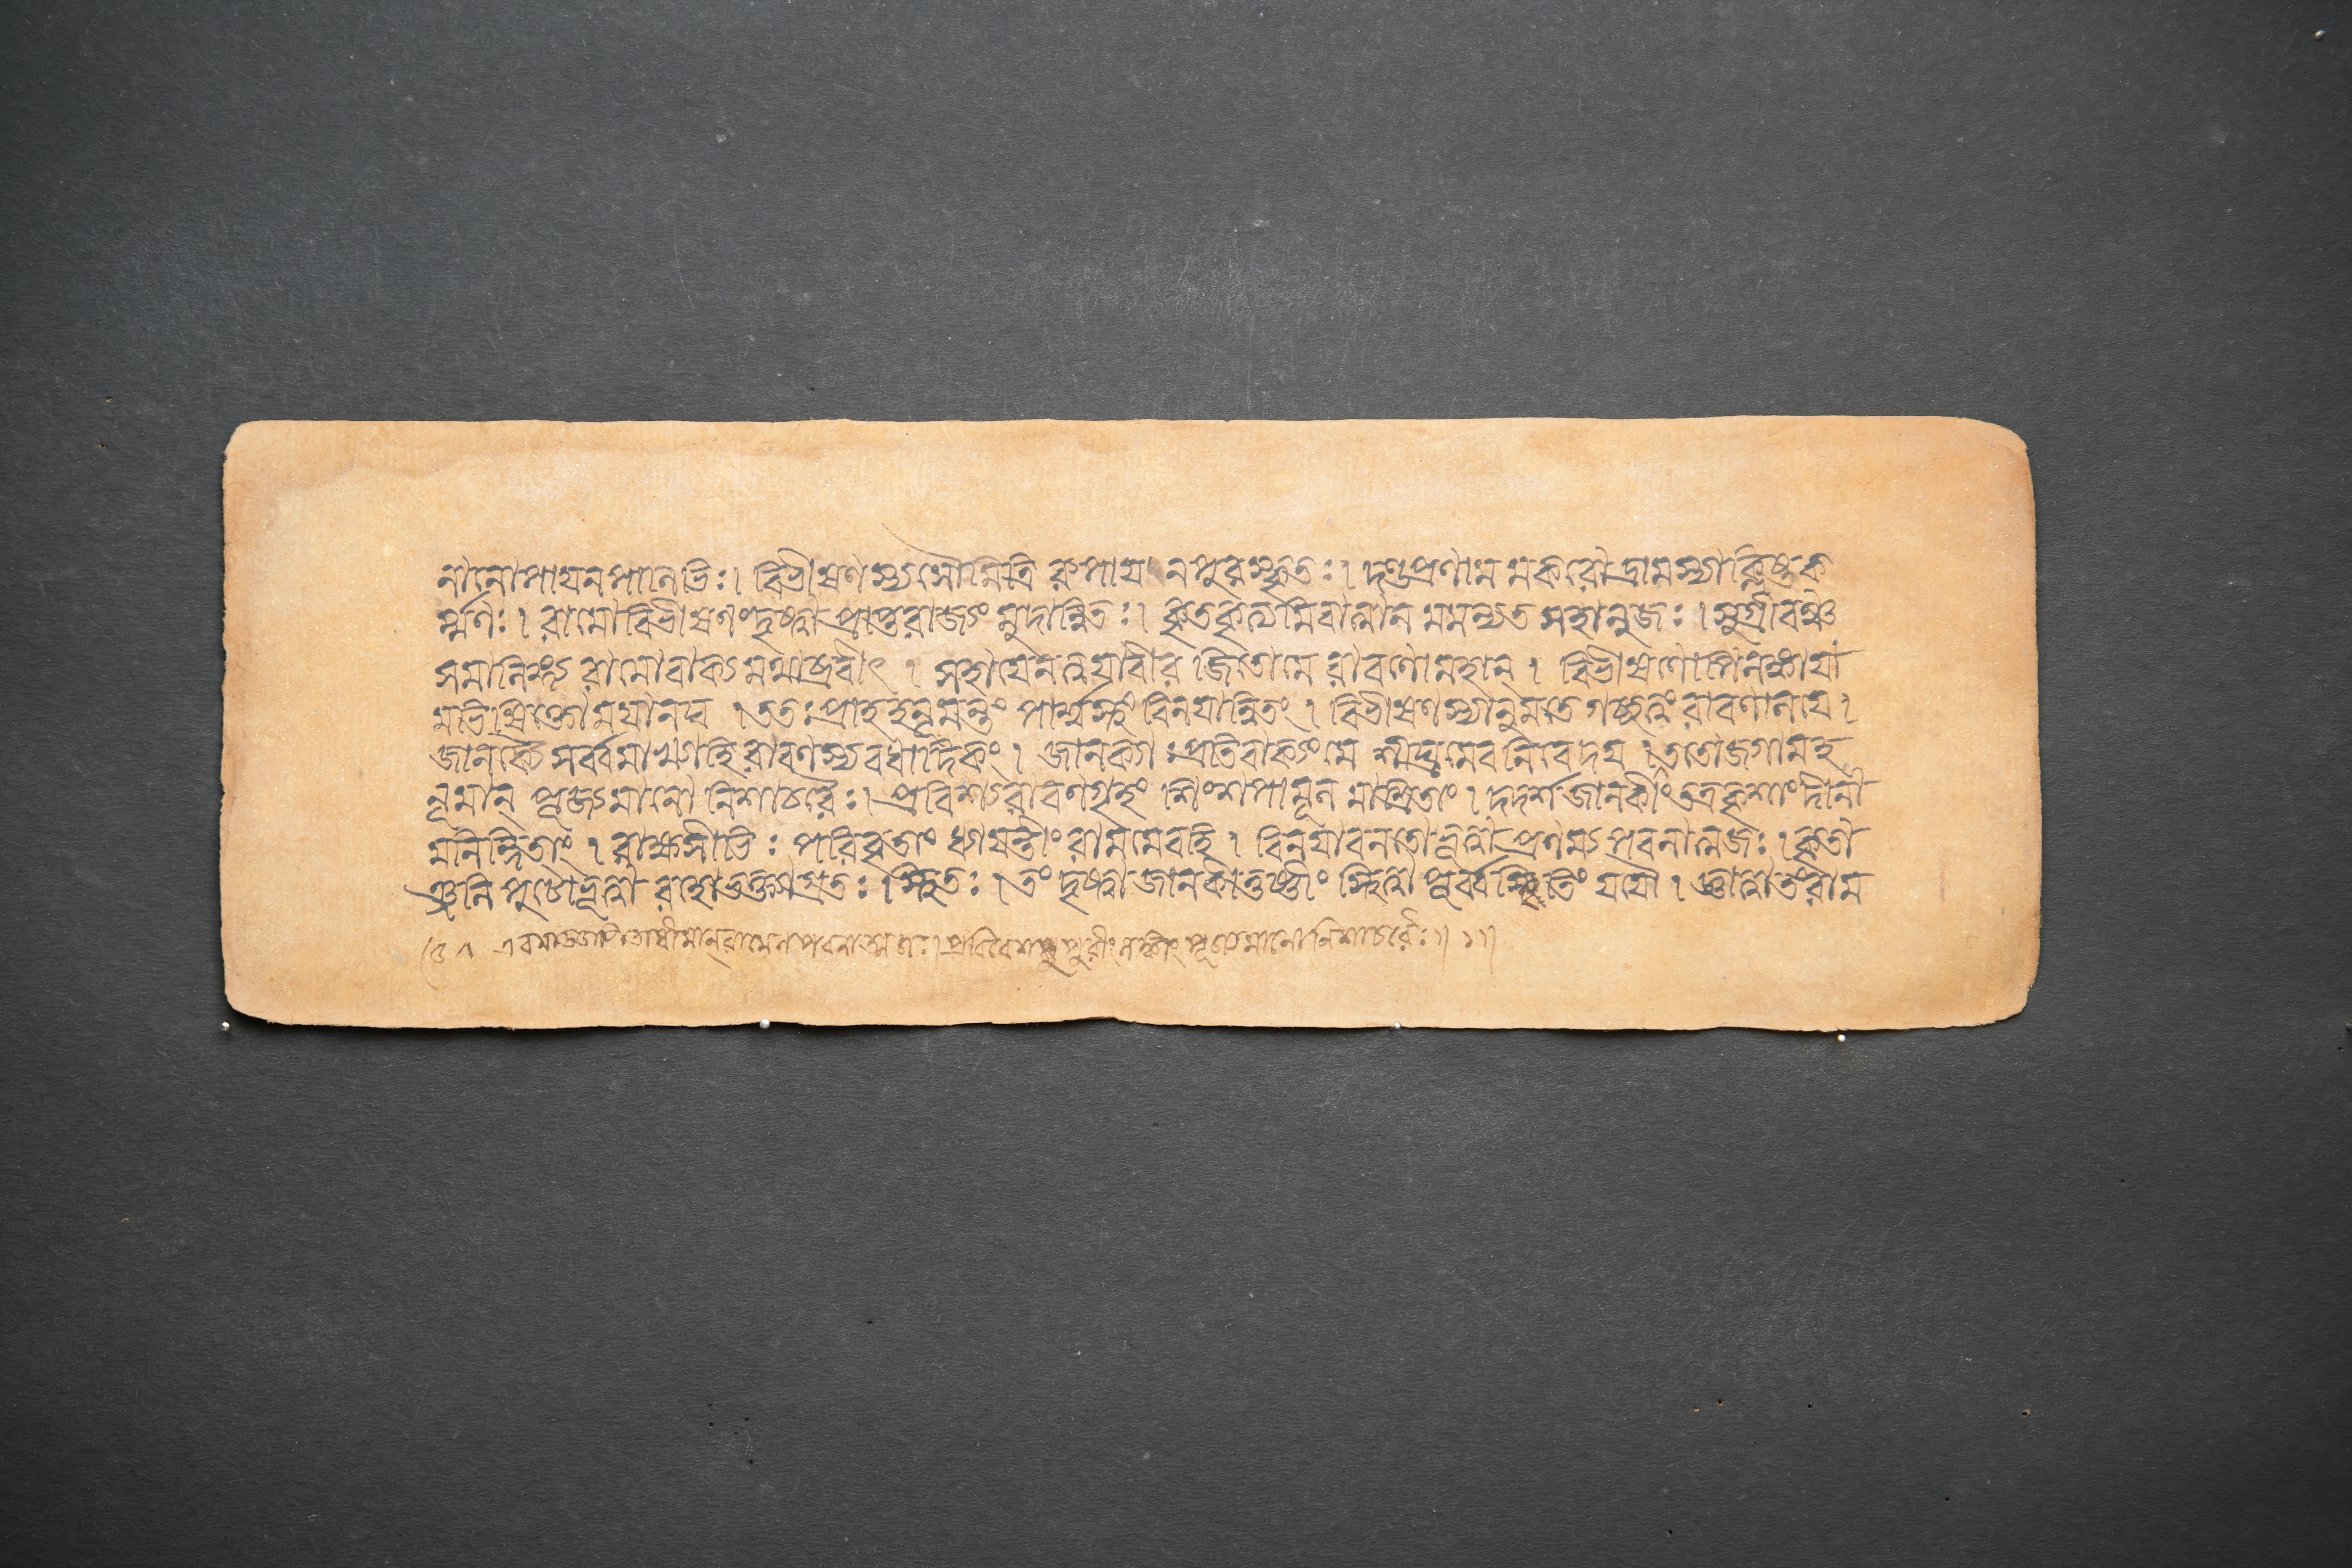 নানোপাযনপানিভিঃ। বিভীষণস্যসৌমিত্রি রুপাযনপুরস্কৃতঃ। দণ্ডপ্রণামমকরোদ্রামস্যাক্লিষ্টক
র্ম্মণঃ। রামোবিভীষণংদৃষ্ট্বাপ্রাপ্তরাজ্যং মুদান্বিতঃ। কৃতকৃত্যমিবাত্মান মমন্যত সহানুজঃ। সুগ্রীবঞ্চ
সমালিঙ্গ্য রামোবাক্যমথাব্রবীৎ। সহাযেনত্বযাবীর জিতোমে রাবণোমহান্। বিভীষণোপিলঙ্কাযা
মভিষিক্তোমযানঘ। ততঃপ্রাহহনূমন্তং পার্শ্বস্থং বিনযান্বিতং। বিভীষণস্যানুমতে গচ্ছত্বং রাবণালয।
জানক্যৈ সর্ব্বমাখ্যাহি রাবণস্য বধাদিকং। জানক্যাঃপ্রতিবাক্যংমে শীঘ্রমেবনিবেদয। ততোজগামহ
নূমান্ পূজ্যমানো নিশাচরৈঃ। প্রবিশ্য রাবণগৃহং শিংশপামূল মাশ্রিতাং। দদর্শজানকীংতত্রকৃশাং দীনা
মনিন্দিতাং। রাক্ষসীভিঃ পরিবৃতাং ধ্যাযন্তীং রামমেবহি। বিনযাবনতোভূত্বাপ্রণম্য পবনাত্মজঃ। কৃতা
ঞ্জলিপুটোভূত্বা প্রহ্বোভক্ত্যাগ্রতঃ।স্থিতঃ। তং দৃষ্ট্বাজানকীতূষ্ণীং স্থিত্বা পূর্ব্বস্মৃতিং যযৌ। জ্ঞাত্বাতংরাম
এবমাজ্ঞাপিতোধীমান্রামেনপবনাত্মজঃ।প্রবিবেশ পুরীংলঙ্কাং পূজ্যমানোনিশাচরৈঃ।১।